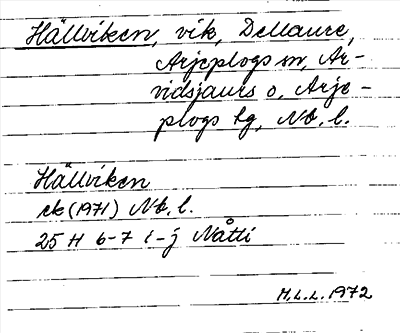 Hällviken, vik, Dellaure,
Arjeplogs sn, Ar-
vidsjaurs o, Arje-
plogs tg, Nb. l.
Hällviken
ek (1971) Nb. l.
25 H 6-7 i-j Nåtti
M.L.L. 1972